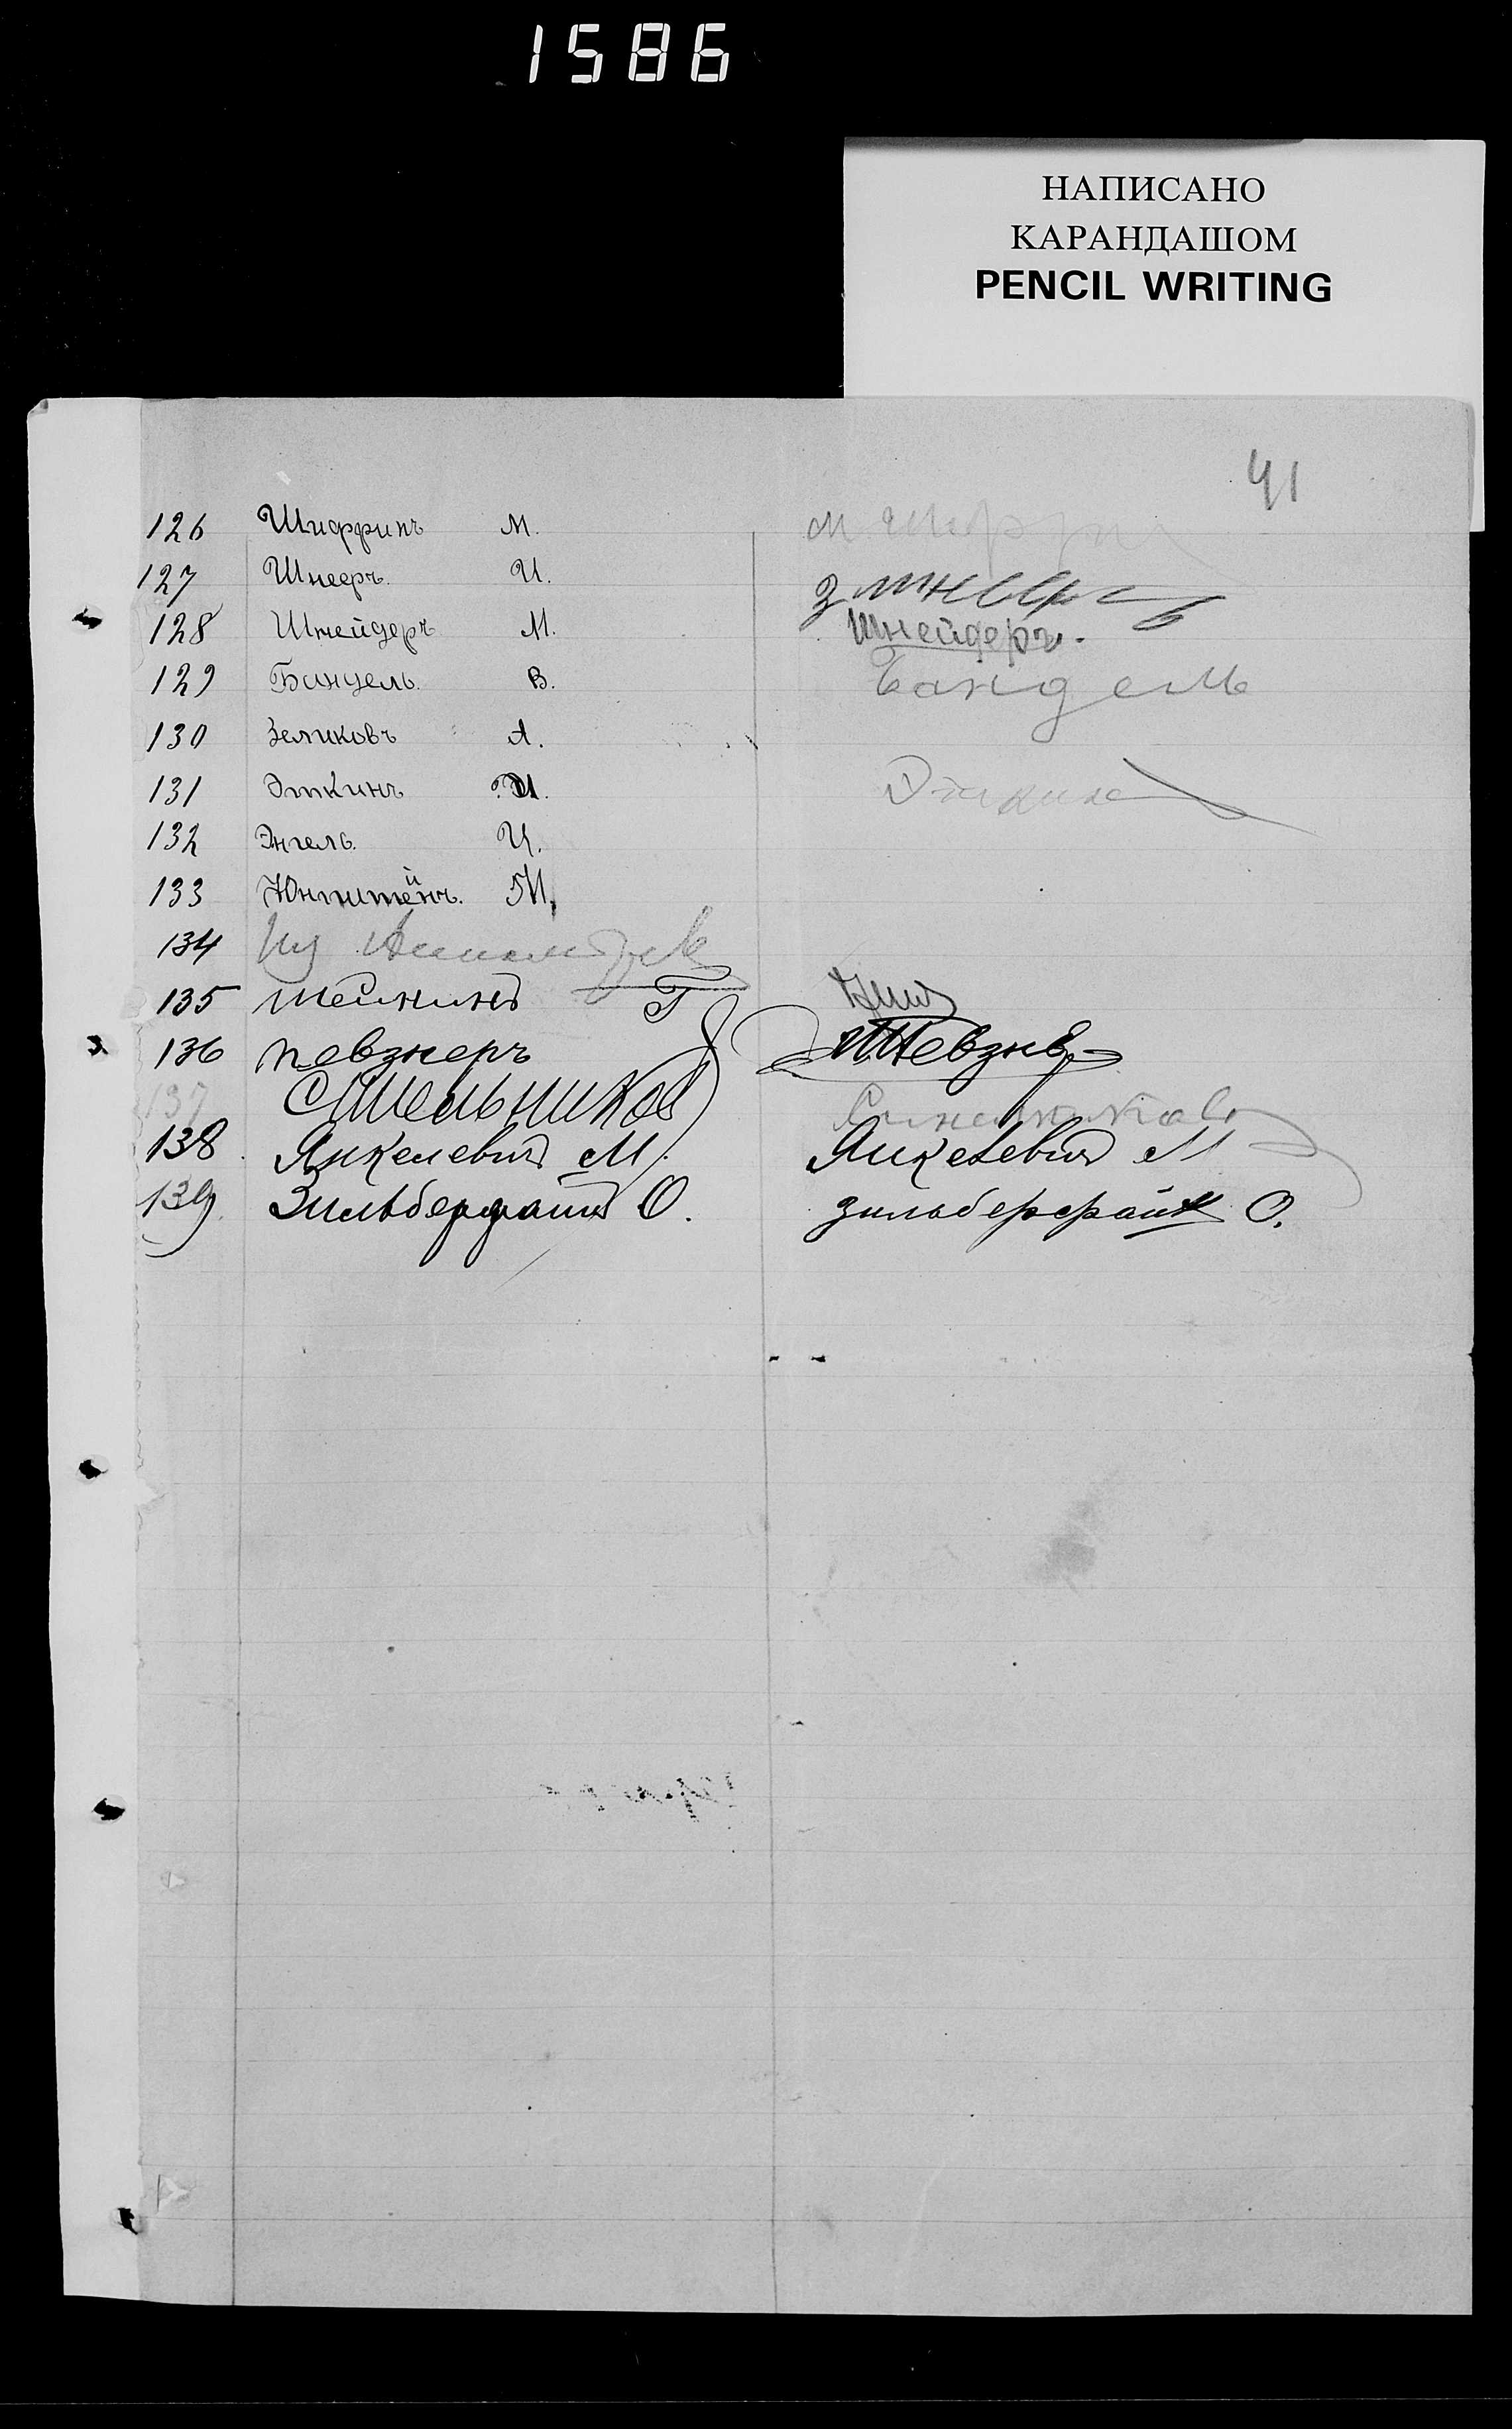 1586
НАПИСАНО
КАРАНДАШОМ
PENCIL WRITING
41
126 Шифринъ М. М
127 Шнееръ. И.
128 Шнейдеръ М. Шнейдеръ.
129 Бандель. В. Бандель
130 Зеликовъ А.
131 Эткинъ Эткинъ
132 Энгель. И.
133 М.
134
135 Г
136 певзнеръ Певзнеръ
137 Синельниковъ
138 Янкелевич М. Янкелевич М
139 Зильберфайн О. зильберфайн О.